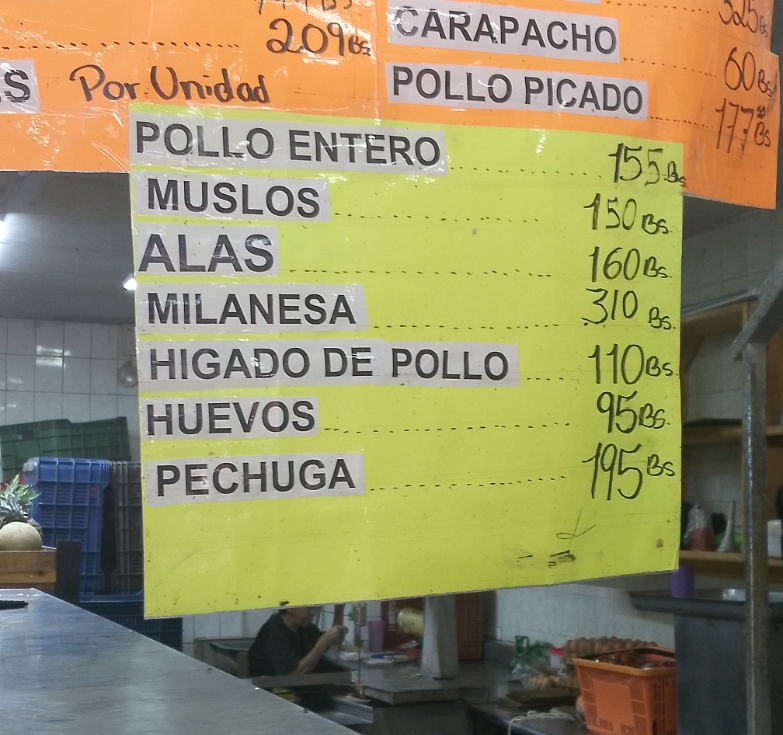 209Bs
S Por Unidad
325Bs
CARAPACHO 60Bs
POLLO PICADO 177Bs
POLLO ENTERO 155Bs
MUSLOS 150Bs.
ALAS 160Bs.
MILANESA 310 Bs.
HIGADO DE POLLO 110Bs.
HUEVOS 95Bs.
PECHUGA 195Bs